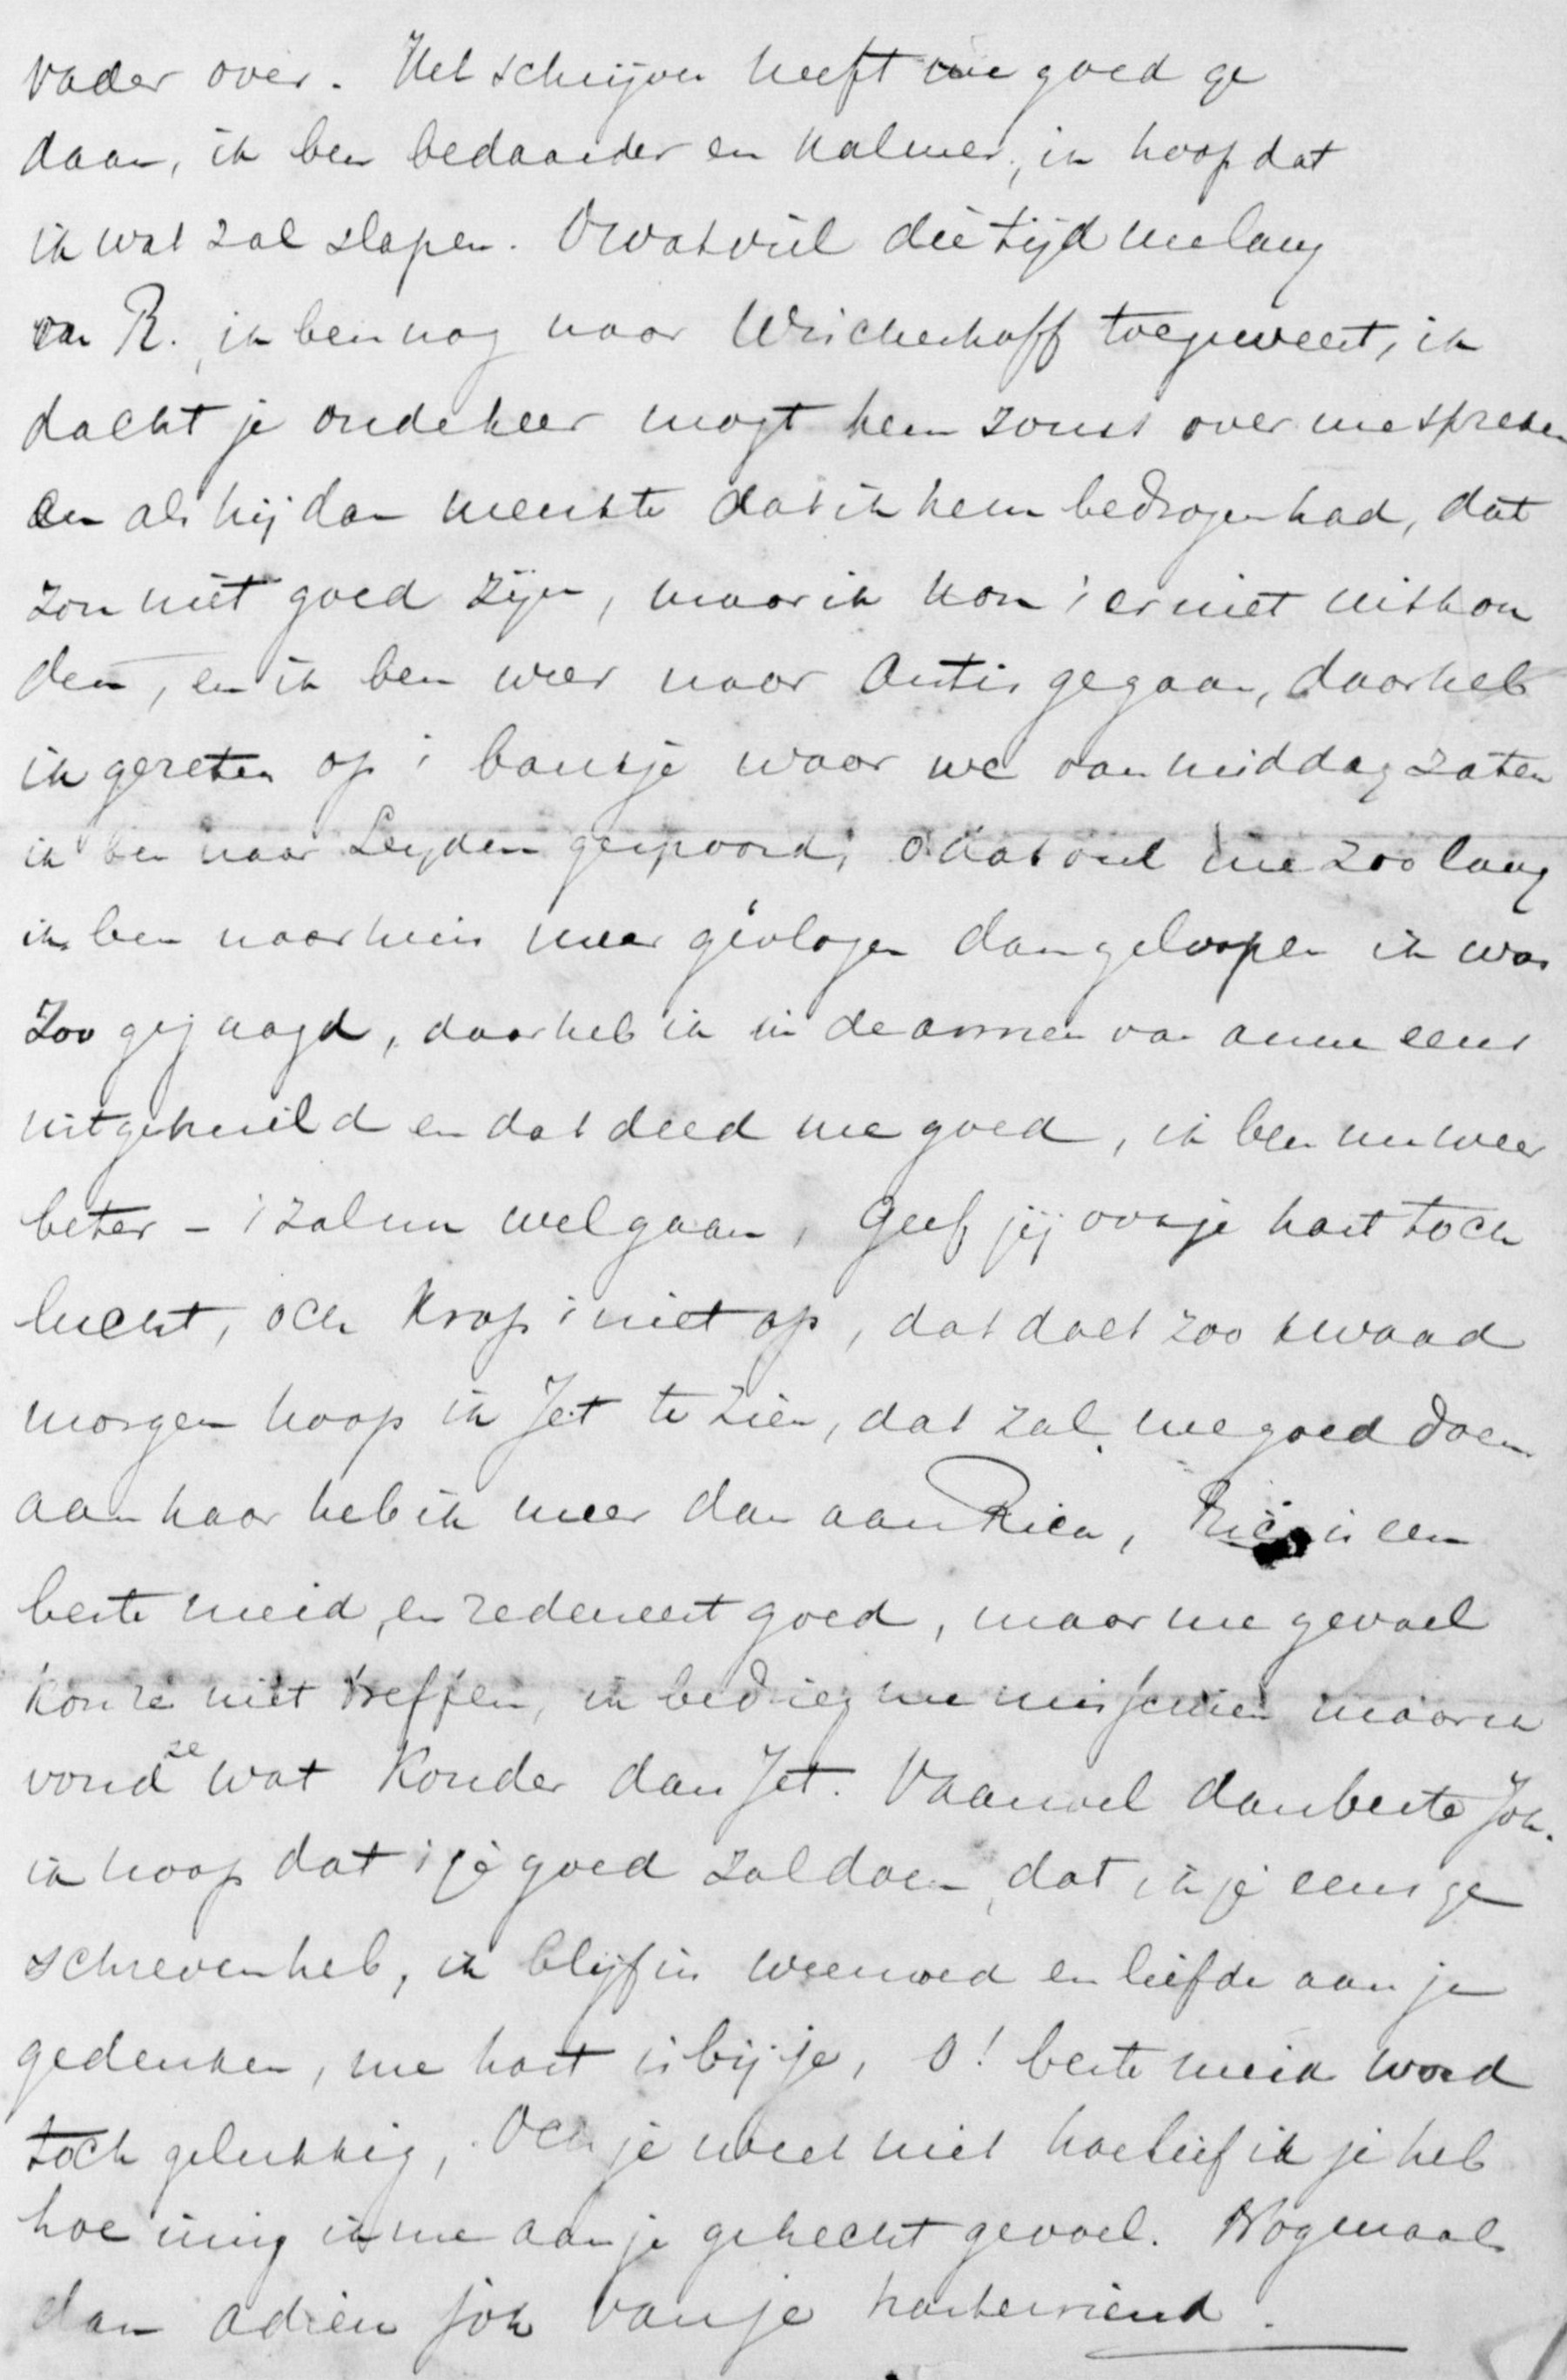 vader over. Het schrijven heeft me goed ge
daan, ik ben bedaarder en kalmer, ik hoop dat
ik wat zal slapen. O wat viel die tijd me lang
van R. ik ben nog naar Wischerhoff toegeweest, ik
dacht je oude heer mogt hem zomts over me spreken
en als hij dan merkte dat ik hem bedrogen had, dat
zou niet goed zijn, maar ik kon 't er niet uithou
den, en ik ben weer naar Artis gegaan, daar heb
ik gezeten op 't bankje waar we van middag zaten
ik ben naar Leyden gespoord, o dat viel me zoo lang
ik ben naar huis meer gevlogen dan geloopen ik was
zoo gejaagd, daar heb ik in de armen van anna eens
uitgehuild en dat deed me goed, ik ben nu weer
beter - 't zal nu wel gaan, geef jij ook je hart toch
lucht, och krop 't niet op, dat doet zoo kwaad
morgen hoop ik Jet te zien, dat zal me goed doen
aan haar heb ik meer dan aan Rica, Rica is een
beste meid, en redeneert goed, maar me gevoel
kon ze niet treffen, ik bedrieg me misschien maar ik
vond ze wat kouder dan Jet. Vaarwel dan beste Joh.
ik hoop dat 't je goed zal doen, dat ik je eens ge
schreven heb, ik blijf in weemoed en liefde aan je
gedenken, me hart is bij je, O! beste meid word
toch gelukkig, Och je weet niet hoe lief ik je heb
hoe innig ik me aan je gehecht gevoel. Nogmaals
dan adieu Joh van je hartevriend.